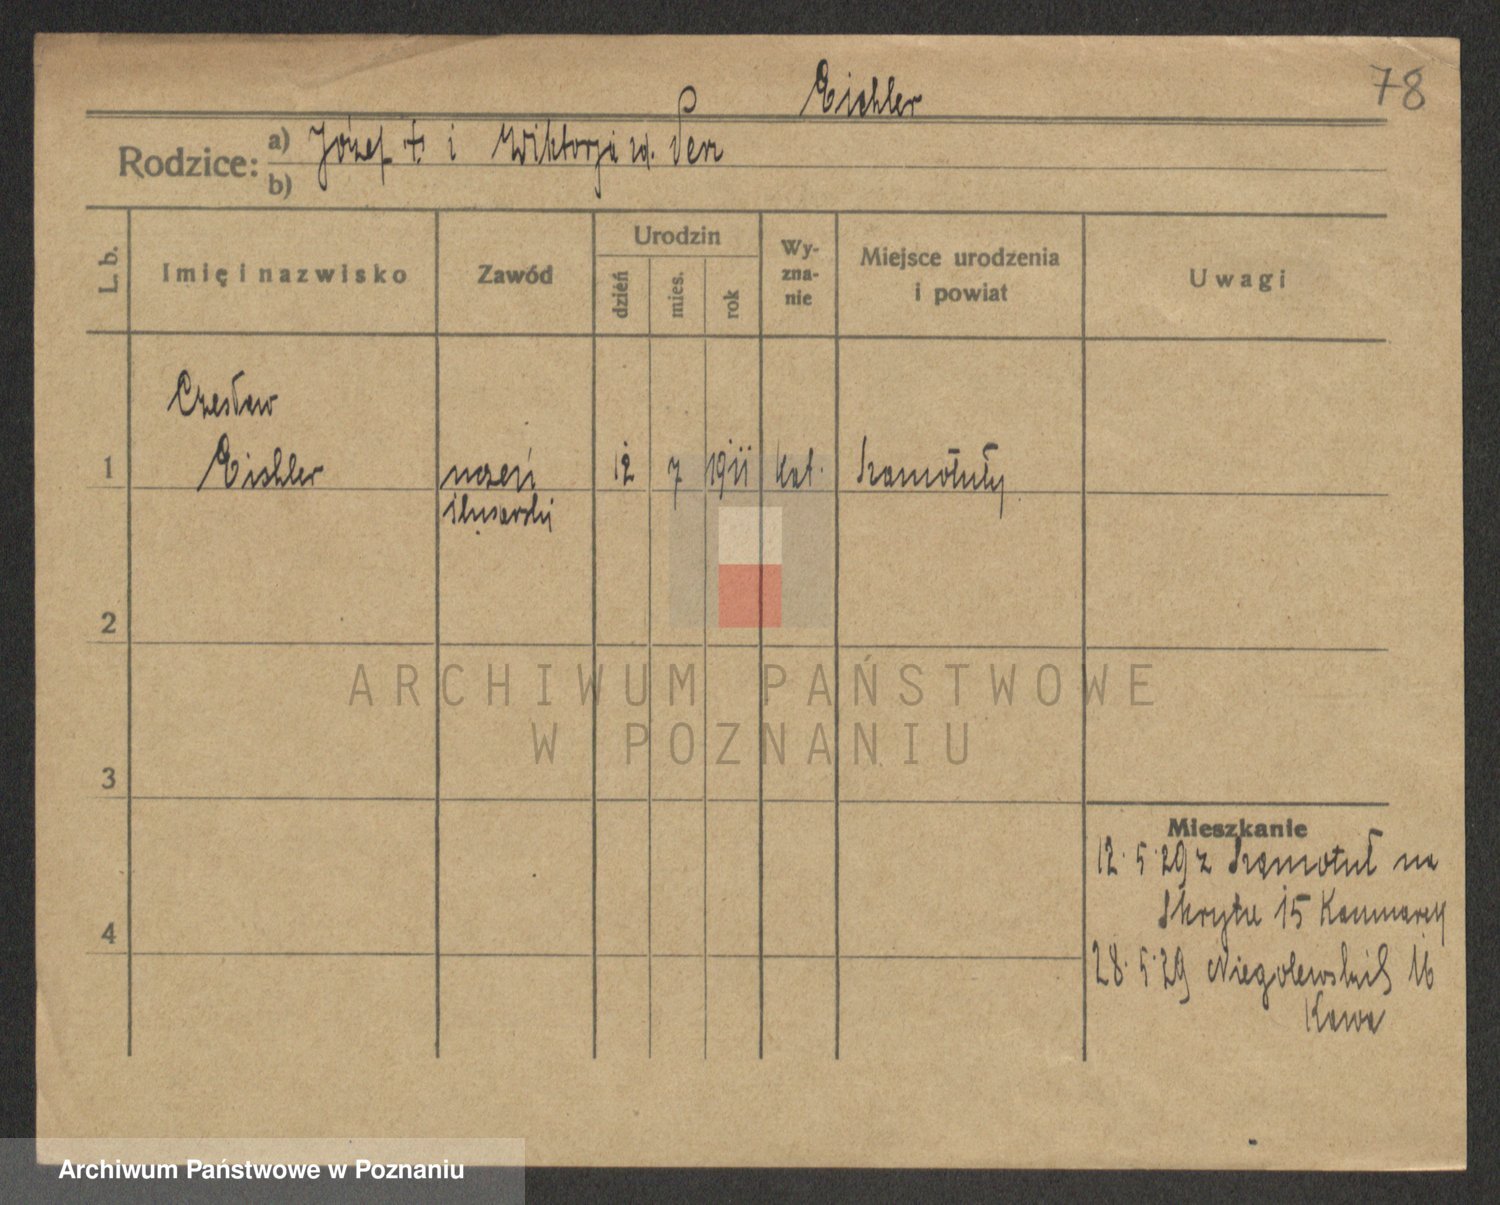 78
Eichler
Rodzice:
a) Józef + i Wiktorja zd. Perz
b)
L. b.
Imię i nazwisko
Zawód
Urodzin
dzień
mies.
rok
Wy-
zna-
nie
Miejsce urodzenia
i powiat
Uwagi
Czesław
1 Eichler uczeń 12 7 1911 kat. Szamotuły
ślusarski
2
ARCHIWUM PAŃSTWOWE
W POZNANIU
3
Mieszkanie
12.5.29 z Szamotuł na
Skryta 15 Kaczmarek
4
28.5.29 Niegolewskich 16
Kawa
Archiwum Państwowe w Poznaniu